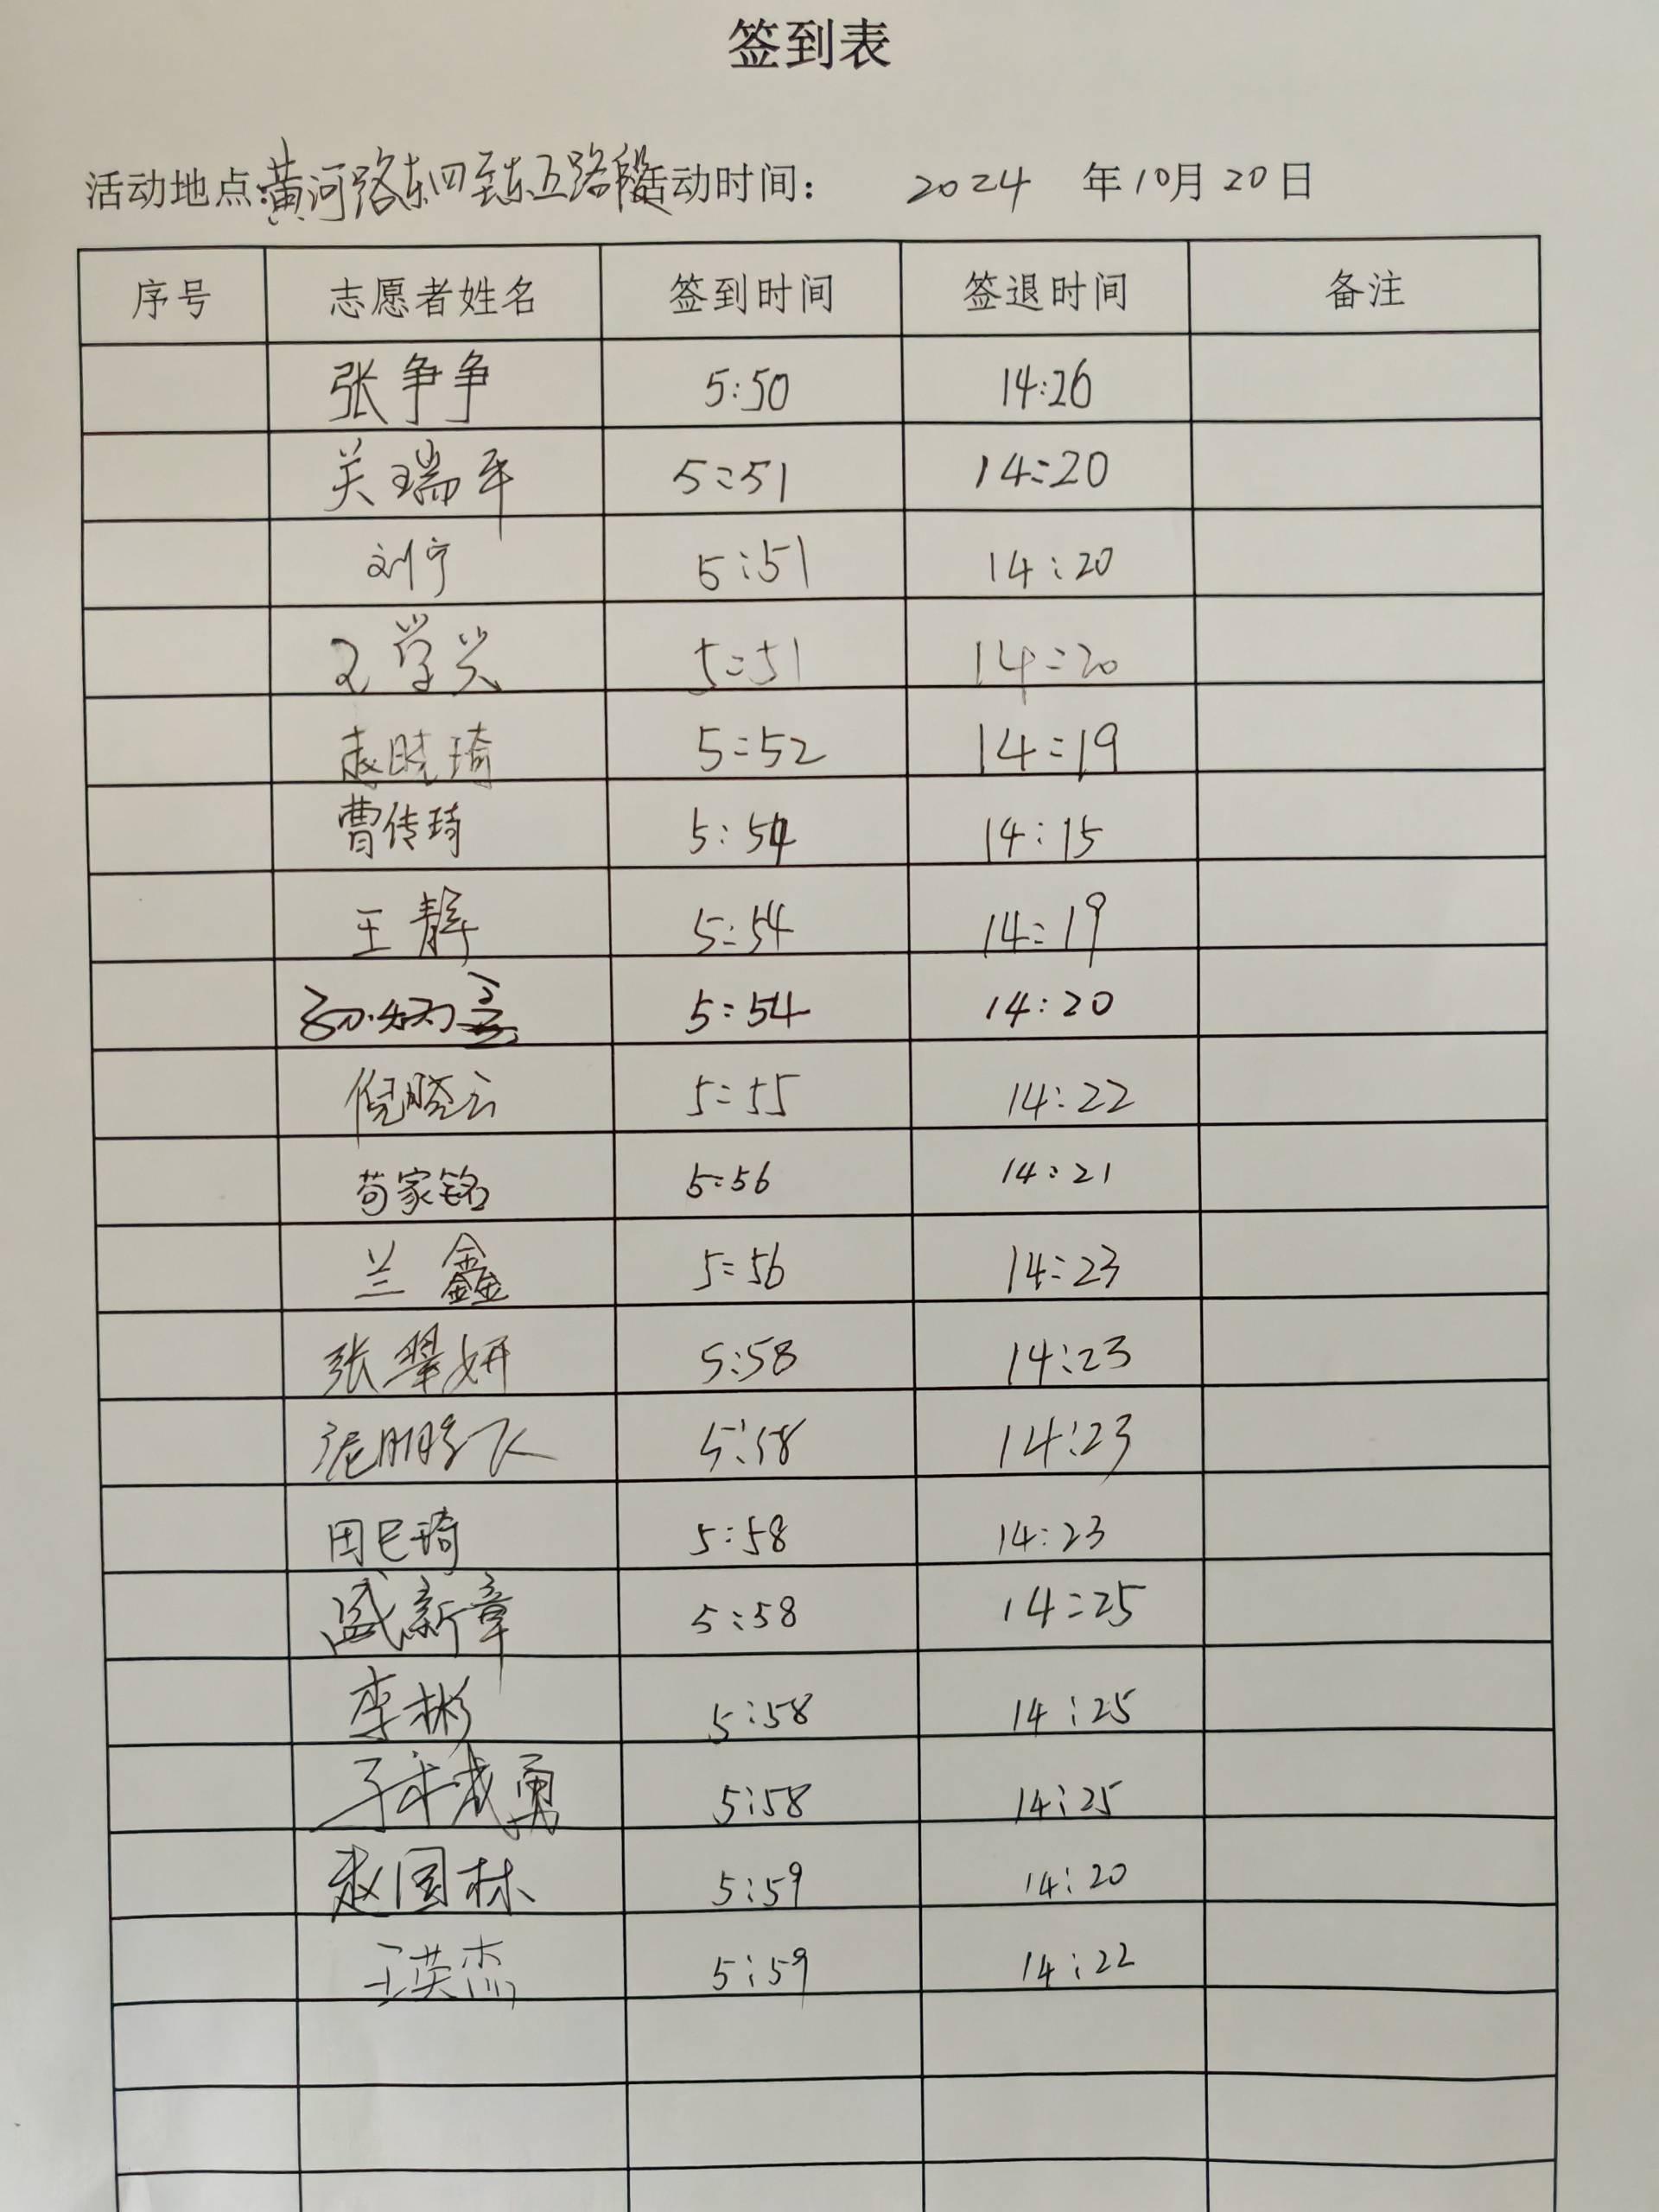 签到表
活动地点:黄河路东四至东五路段活动时间： 2024 年10月20日
序号 志愿者姓名 签到时间 签退时间 备注
张争争 5:50 14:26
关瑞平 5:51 14:20
刘宁 5:51 14:20
学兴 5:51 14:20
赵晓琦 5:52 14:19
曹传琦 5:54 14:15
王静 5:54 14:19
5:54 14:20
倪晓云 5:55 14:22
苟家铭 5:56 14:21
兰鑫 5:56 14:23
张翠妍 5:58 14:23
鹏飞 5:58 14:23
田巳琦 5:58 14:23
盛新章 5:58 14:25
李彬 5:58 14:25
成勇 5:58 14:25
赵国林 5:59 14:20
王英杰 5:59 14:22